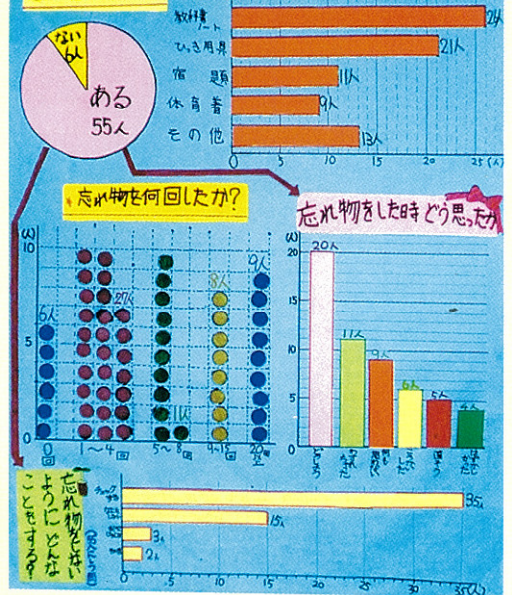 ない
6人
ある
55人
教科書
ノート
24人
ひっき用具
21人
宿題
11人
体育着
9人
その他
13人
0 5 10 15 20 25 (人)
忘れ物を何回したか?
(人)
10
5
0
6人
27人
11人
8人
9人
0回
1〜4回
5〜8回
9〜15回
20回
忘れ物をした時どう思ったか
(人)
20
15
10
5
0
20人
11人
9人
6人
5人
4人
忘れ物をしない
ように どんな
ことをする?
35人
15人
3人
2人
0 5 10 15 20 25 30 35(人)